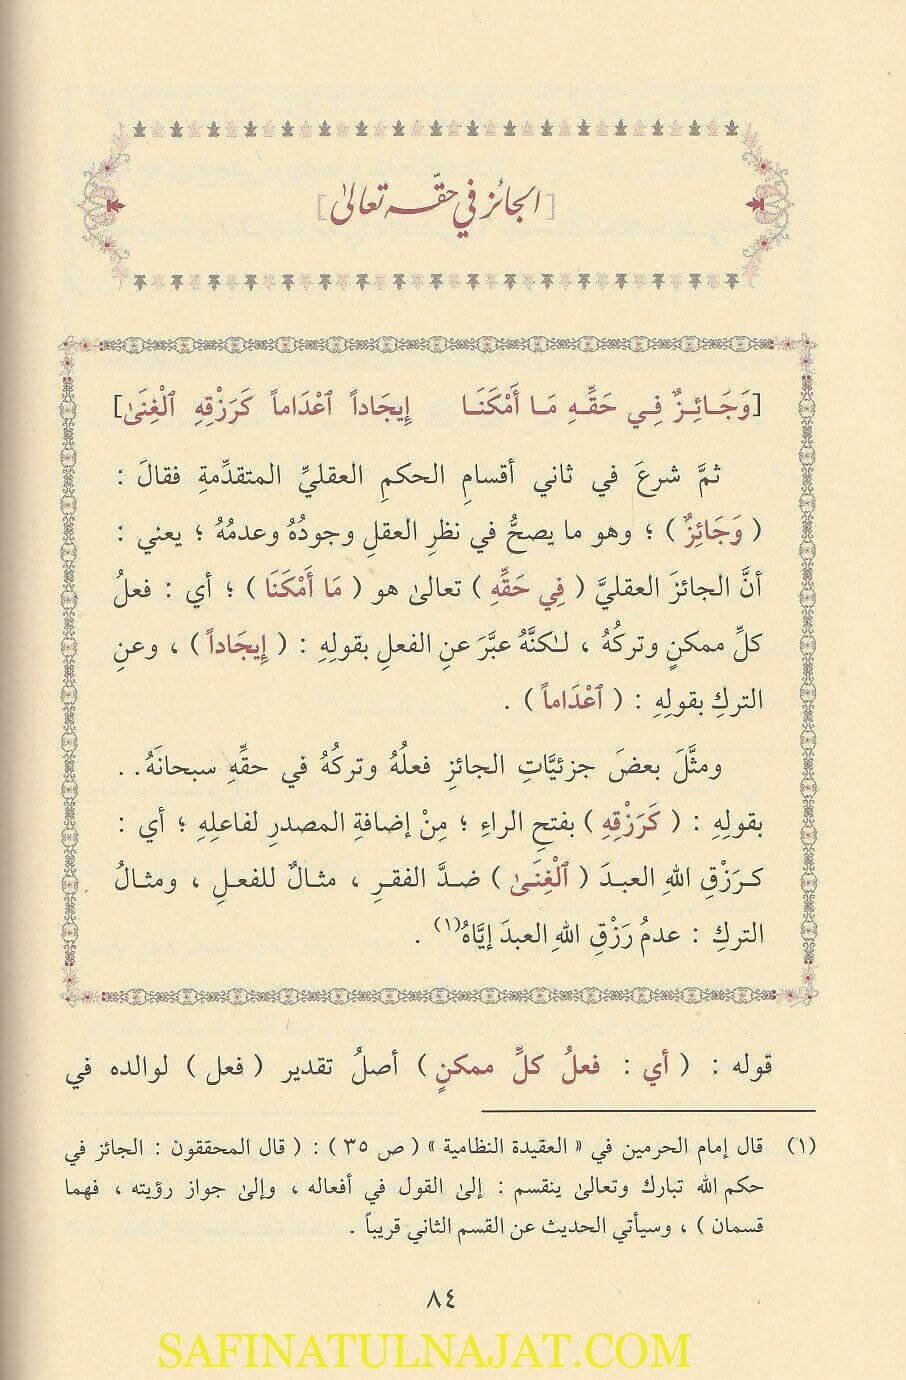 [الجائز في حقّه تعالىٰ]
[وَجَائِزٌ فِي حَقِّهِ مَا أَمْكَنَا إِيجَاداً ٱعْدَاماً كَرَزْقِهِ ٱلْغِنَىٰ]
ثمَّ شرعَ في ثاني أقسامِ الحكمِ العقليِّ المتقدِّمةِ فقالَ :
( وَجَائِزٌ ) ؛ وهو ما يصحُّ في نظرِ العقلِ وجودُهُ وعدمُهُ ؛ يعني :
أنَّ الجائزَ العقليَّ ( فِي حَقِّهِ ) تعالىٰ هو ( مَا أَمْكَنَا ) ؛ أي : فعلُ
كلِّ ممكنٍ وتركُهُ ، لـٰكنَّهُ عبَّرَ عنِ الفعلِ بقولِهِ : ( إِيجَاداً ) ، وعنِ
التركِ بقولِهِ : ( ٱعْدَاماً ) .
ومثَّلَ بعضَ جزئيَّاتِ الجائزِ فعلُهُ وتركُهُ في حقِّهِ سبحانَهُ..
بقولِهِ : ( كَرَزْقِهِ ) بفتحِ الراءِ ؛ مِنْ إضافةِ المصدرِ لفاعلِهِ ؛ أي :
كـرَزْقِ اللهِ العبدَ ( ٱلْغِنَىٰ ) ضدَّ الفقرِ ، مثالٌ للفعلِ ، ومثالُ
التركِ : عدمُ رَزْقِ اللهِ العبدَ إيَّاهُ(١) .
قوله : ( أي : فعلُ كلِّ ممكنٍ ) أصلُ تقدير ( فعل ) لوالده في
(١) قال إمام الحرمين في « العقيدة النظامية » ( ص ٣٥ ) : ( قال المحققون : الجائز في
حكم الله تبارك وتعالىٰ ينقسم : إلى القول في أفعاله ، وإلىٰ جواز رؤيته ، فهما
قسمان ) ، وسيأتي الحديث عن القسم الثاني قريباً .
٨٤
SAFINATULNAJAT.COM